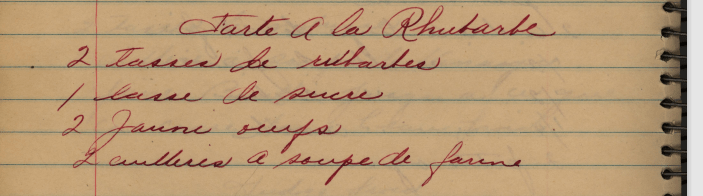 Tarte A la Rhubarbe
2 tasses de rubarbes
1 tasse de sucre
2 Jaune oeufs
2 cuilleres a soupe de farine